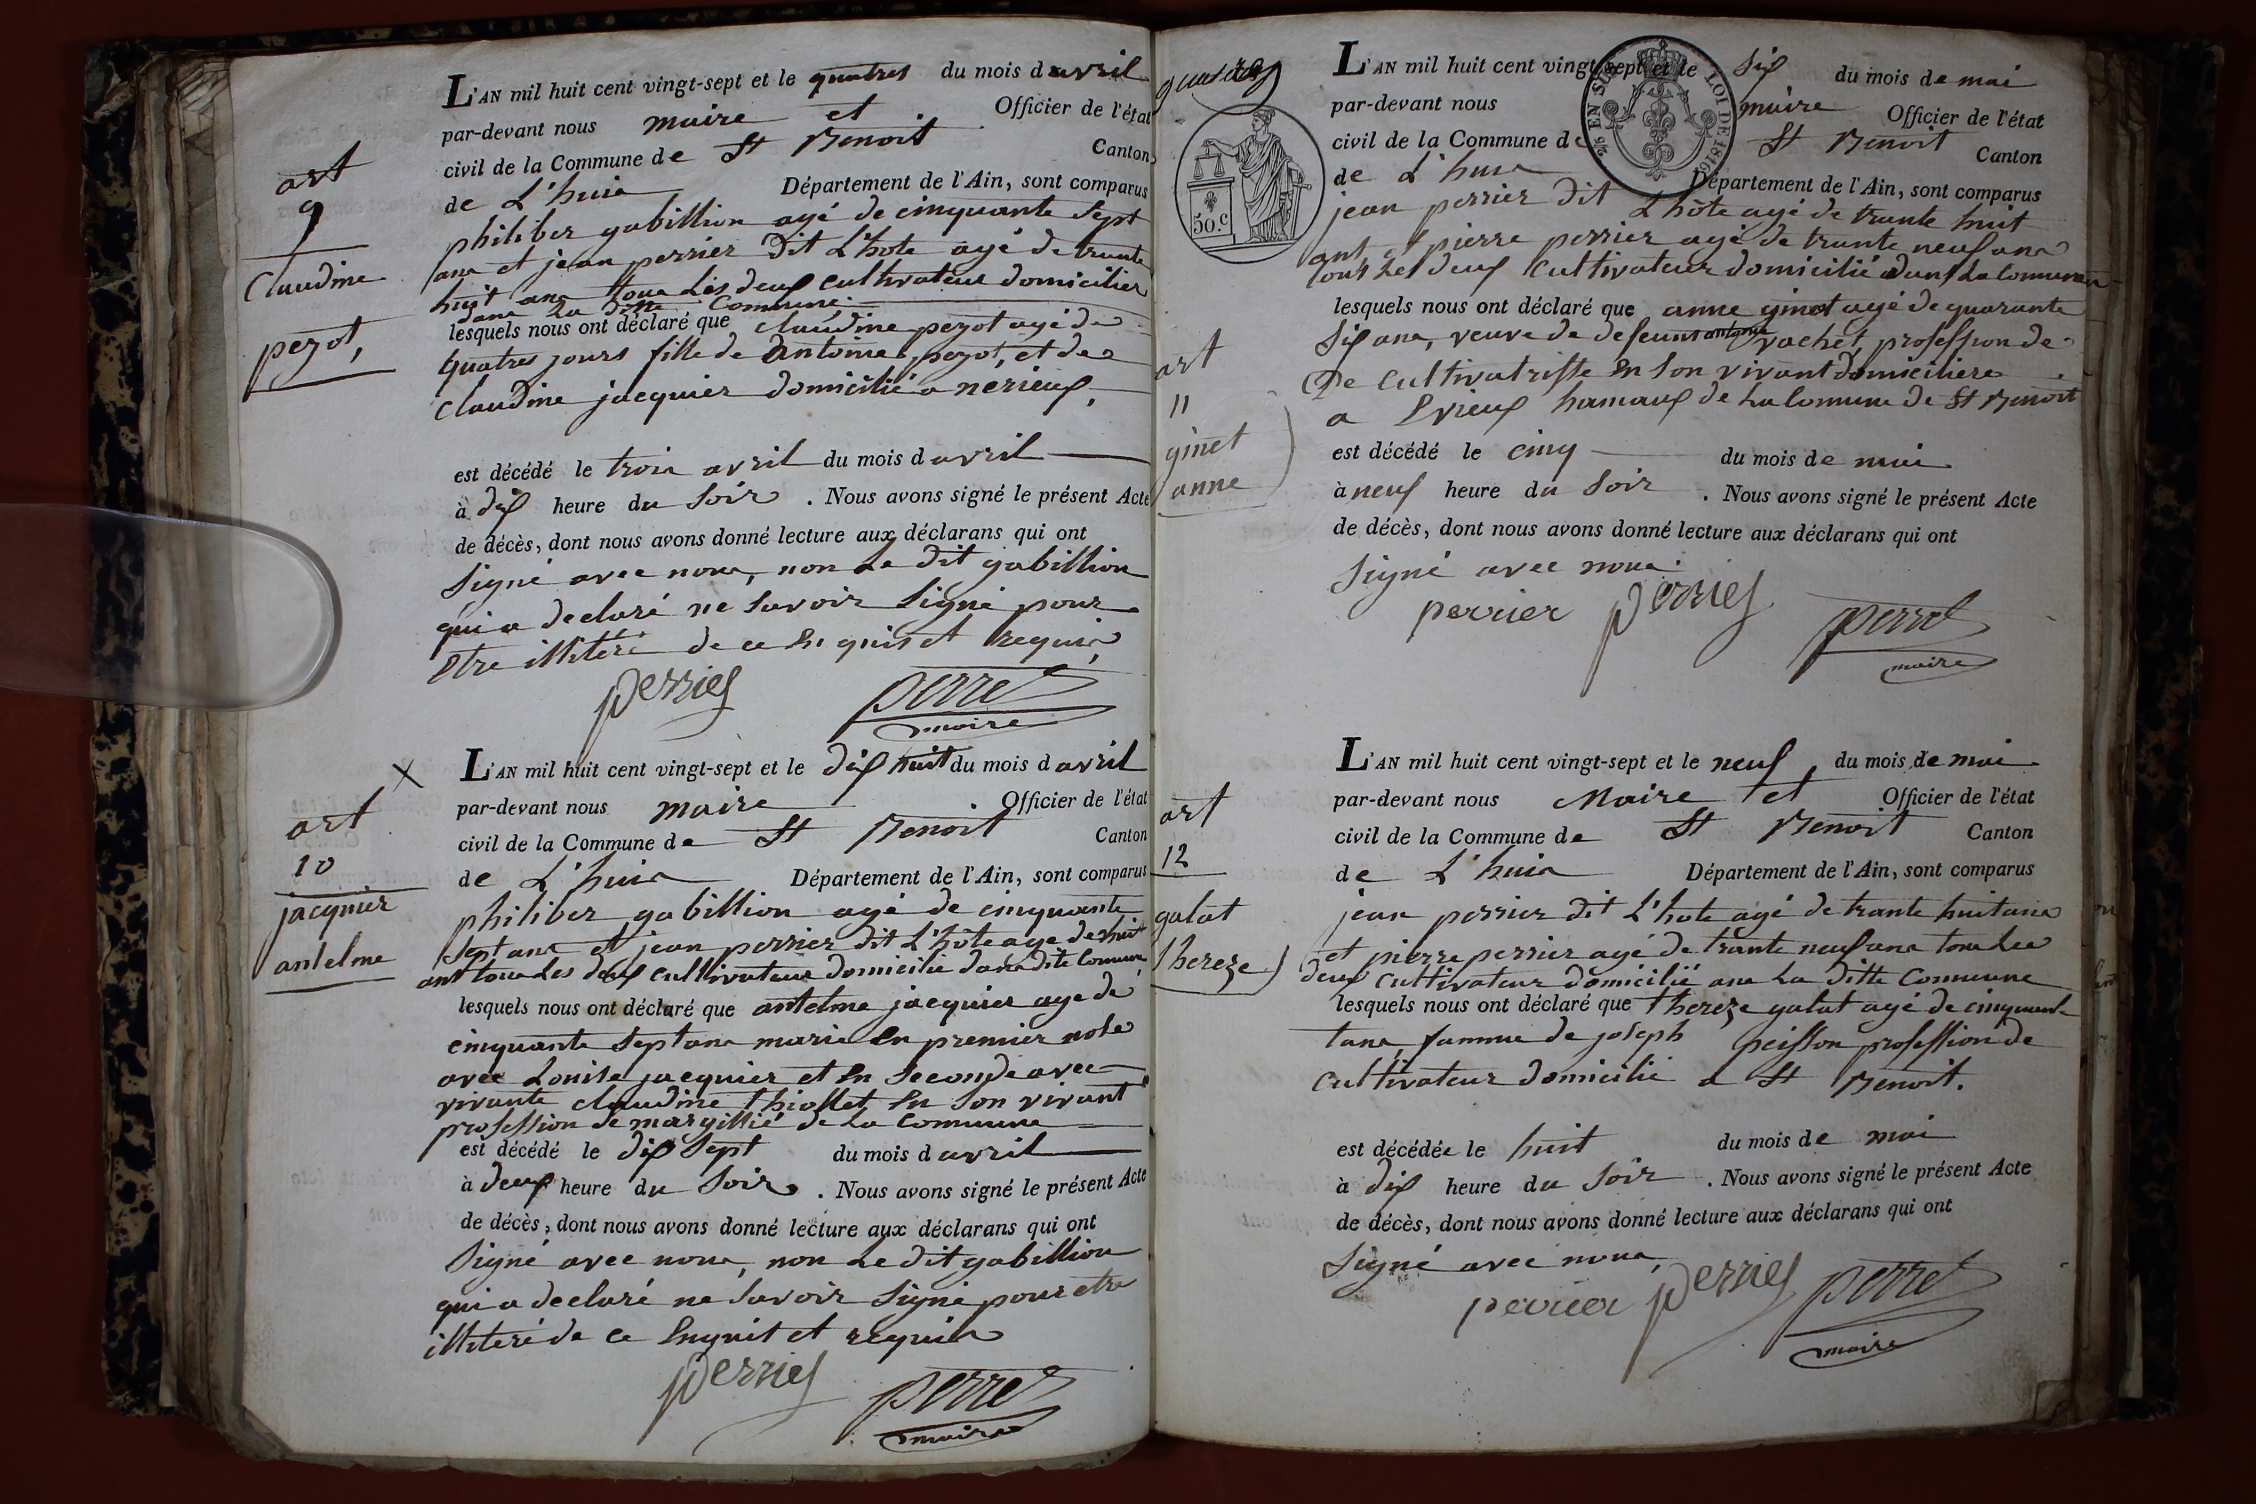 art
9
Claudine
pezot,
L'AN mil huit cent vingt-sept et le quatres du mois d avril
par-devant nous maire et Officier de l'état
civil de la Commune de St Benoit Canton
de L'huis Département de l'Ain, sont comparus
philiber gabillion agé de cinquante sept
ans et jean perrier Dit L'hote agé de trante
huit ans tous Les deux cultivateur domicilier
dans La ditte Commune.
lesquels nous ont déclaré que claudine pezot agé de
quatres jours fille de Antoine pezot, et de
claudine jacquier domicilié a nérieux,
est décédé le trois avril du mois d avril
à dix heure du Soir . Nous avons signé le présent Acte
de décès, dont nous avons donné lecture aux déclarans qui ont
Signé avec nous, non Le Dit gabillion
qui a declaré ne Savoir Signé pour
etre illiteré de ce En quis et Requis,
perrier perret
maire
art
10
jacquier
antelme
L'AN mil huit cent vingt-sept et le dix huit du mois d avril
par-devant nous maire Officier de l'état
civil de la Commune de St Benoit Canton
de L'huis Département de l'Ain, sont comparus
philiber gabillion agé de cinquante
Sept ans et jean perrier dit L'hôte age de huit
ant tous Les deux cultivateur domicilié dans dite Commune
lesquels nous ont déclaré que antelme jacquier age de
cinquante Sept ans marie En premier nose
avec Louise jacquier et En Seconde avec
vivante claudine thiollet En Son vivant
profession de margillié de La Commune
est décédé le dix Sept du mois d avril
à deux heure du Soir . Nous avons signé le présent Acte
de décès, dont nous avons donné lecture aux déclarans qui ont
Signé avec nous, non Le dit gabillion
qui a declaré ne Savoir Signé pour etre
illiteré de ce Enquit et requis
perrier perret
maire
50.c
25 EN SUS LOI DE 1816
L'AN mil huit cent vingt-sept et le Six du mois de mai
par-devant nous maire Officier de l'état
civil de la Commune de St Benoit Canton
de L'huis Département de l'Ain, sont comparus
jean perrier Dit L'hôte agé de trante huit
ant et pierre perrier agé de trante neuf ans
tous Les deux Cultivateur domicilié dans La Commune
lesquels nous ont déclaré que anne ginet agé de quarante
Six ans, veuve de defeunt antoine vachet, profession de
De Cultivatrisse En Son vivant domiciliere
a Evieux hamaux de La Commune de St Benoit
art
11
ginet
anne
est décédé le cinq du mois de mai
à neuf heure du Soir . Nous avons signé le présent Acte
de décès, dont nous avons donné lecture aux déclarans qui ont
Signé avec nous.
perrier perrier perret
maire
art
12
galat
thereze
L'AN mil huit cent vingt-sept et le neuf, du mois de mai
par-devant nous Maire et Officier de l'état
civil de la Commune de St Benoit Canton
de L'huis Département de l'Ain, sont comparus
jean perrier Dit L'hote agé de trante huit ans
et pierre perrier agé de trante neuf ans tous Les
deux cultivateur domicilié ans La ditte Commune
lesquels nous ont déclaré que thereze galat agé de cinquant
tans, famme de joseph peisson profession de
cultivateur domicilié a St Benoit.
est décédée le huit du mois de mai
à dix heure du Soir . Nous avons signé le présent Acte
de décès, dont nous avons donné lecture aux déclarans qui ont
Signé avec nous,
perrier perrier perret
maire